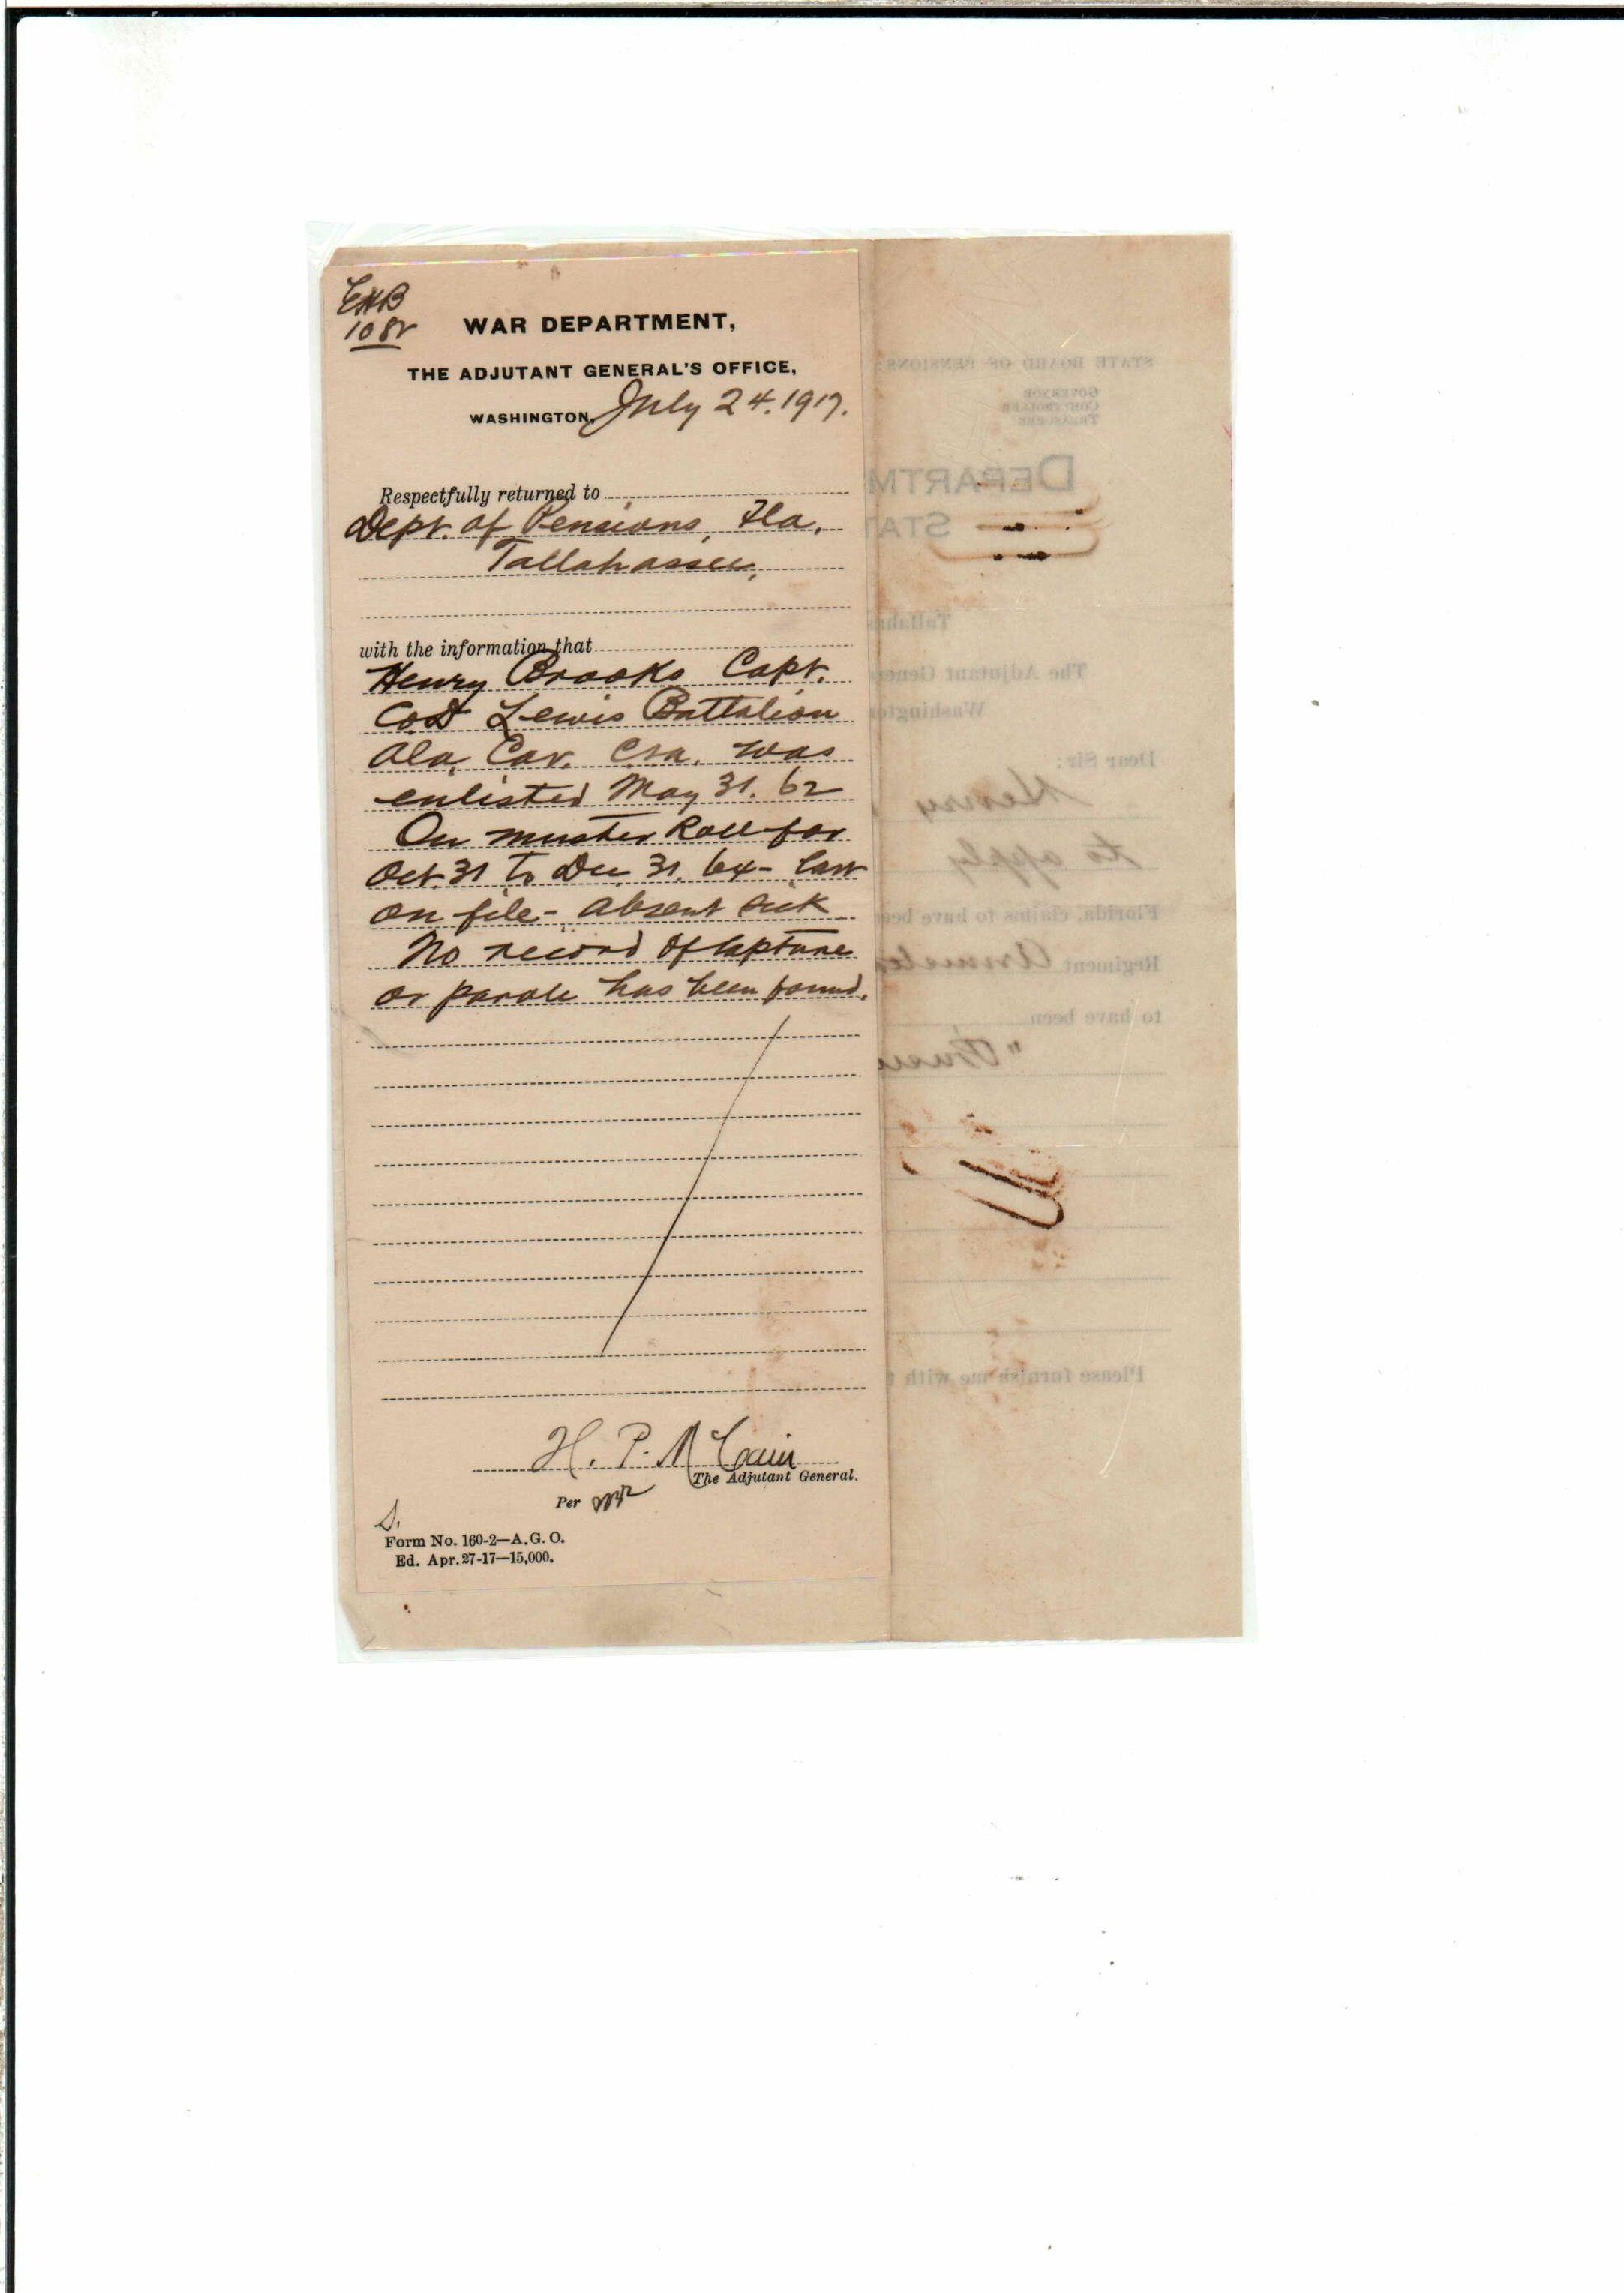 EHB
1082
WAR DEPARTMENT,
THE ADJUTANT GENERAL'S OFFICE,
WASHINGTON, July 24. 1917.
Respectfully returned to
Dept. of Pensions, Fla.
Tallahassee,
with the information that
Henry Brooks Capt.
Co.D Lewis Battalion
Ala. Cav. CSA. was
enlisted May 31. 62
On muster Roll for
Oct 31 to Dec 31. 64 - last
on file - absent sick
No record of capture
or parole has been found.
H. P. McCain
The Adjutant General.
Per
S.
Form No. 160-2—A.G.O.
Ed. Apr. 27-17—15,000.
STATE BOARD OF PENSIONS
GOVERNOR
COMPTROLLER
TREASURER
DEPARTM
STAT
Tallahas
The Adjutant Gener
Washington
Dear Sir:
Henry
to apply
Florida, claims to have bee
Regiment
to have been
Please furnish me with t